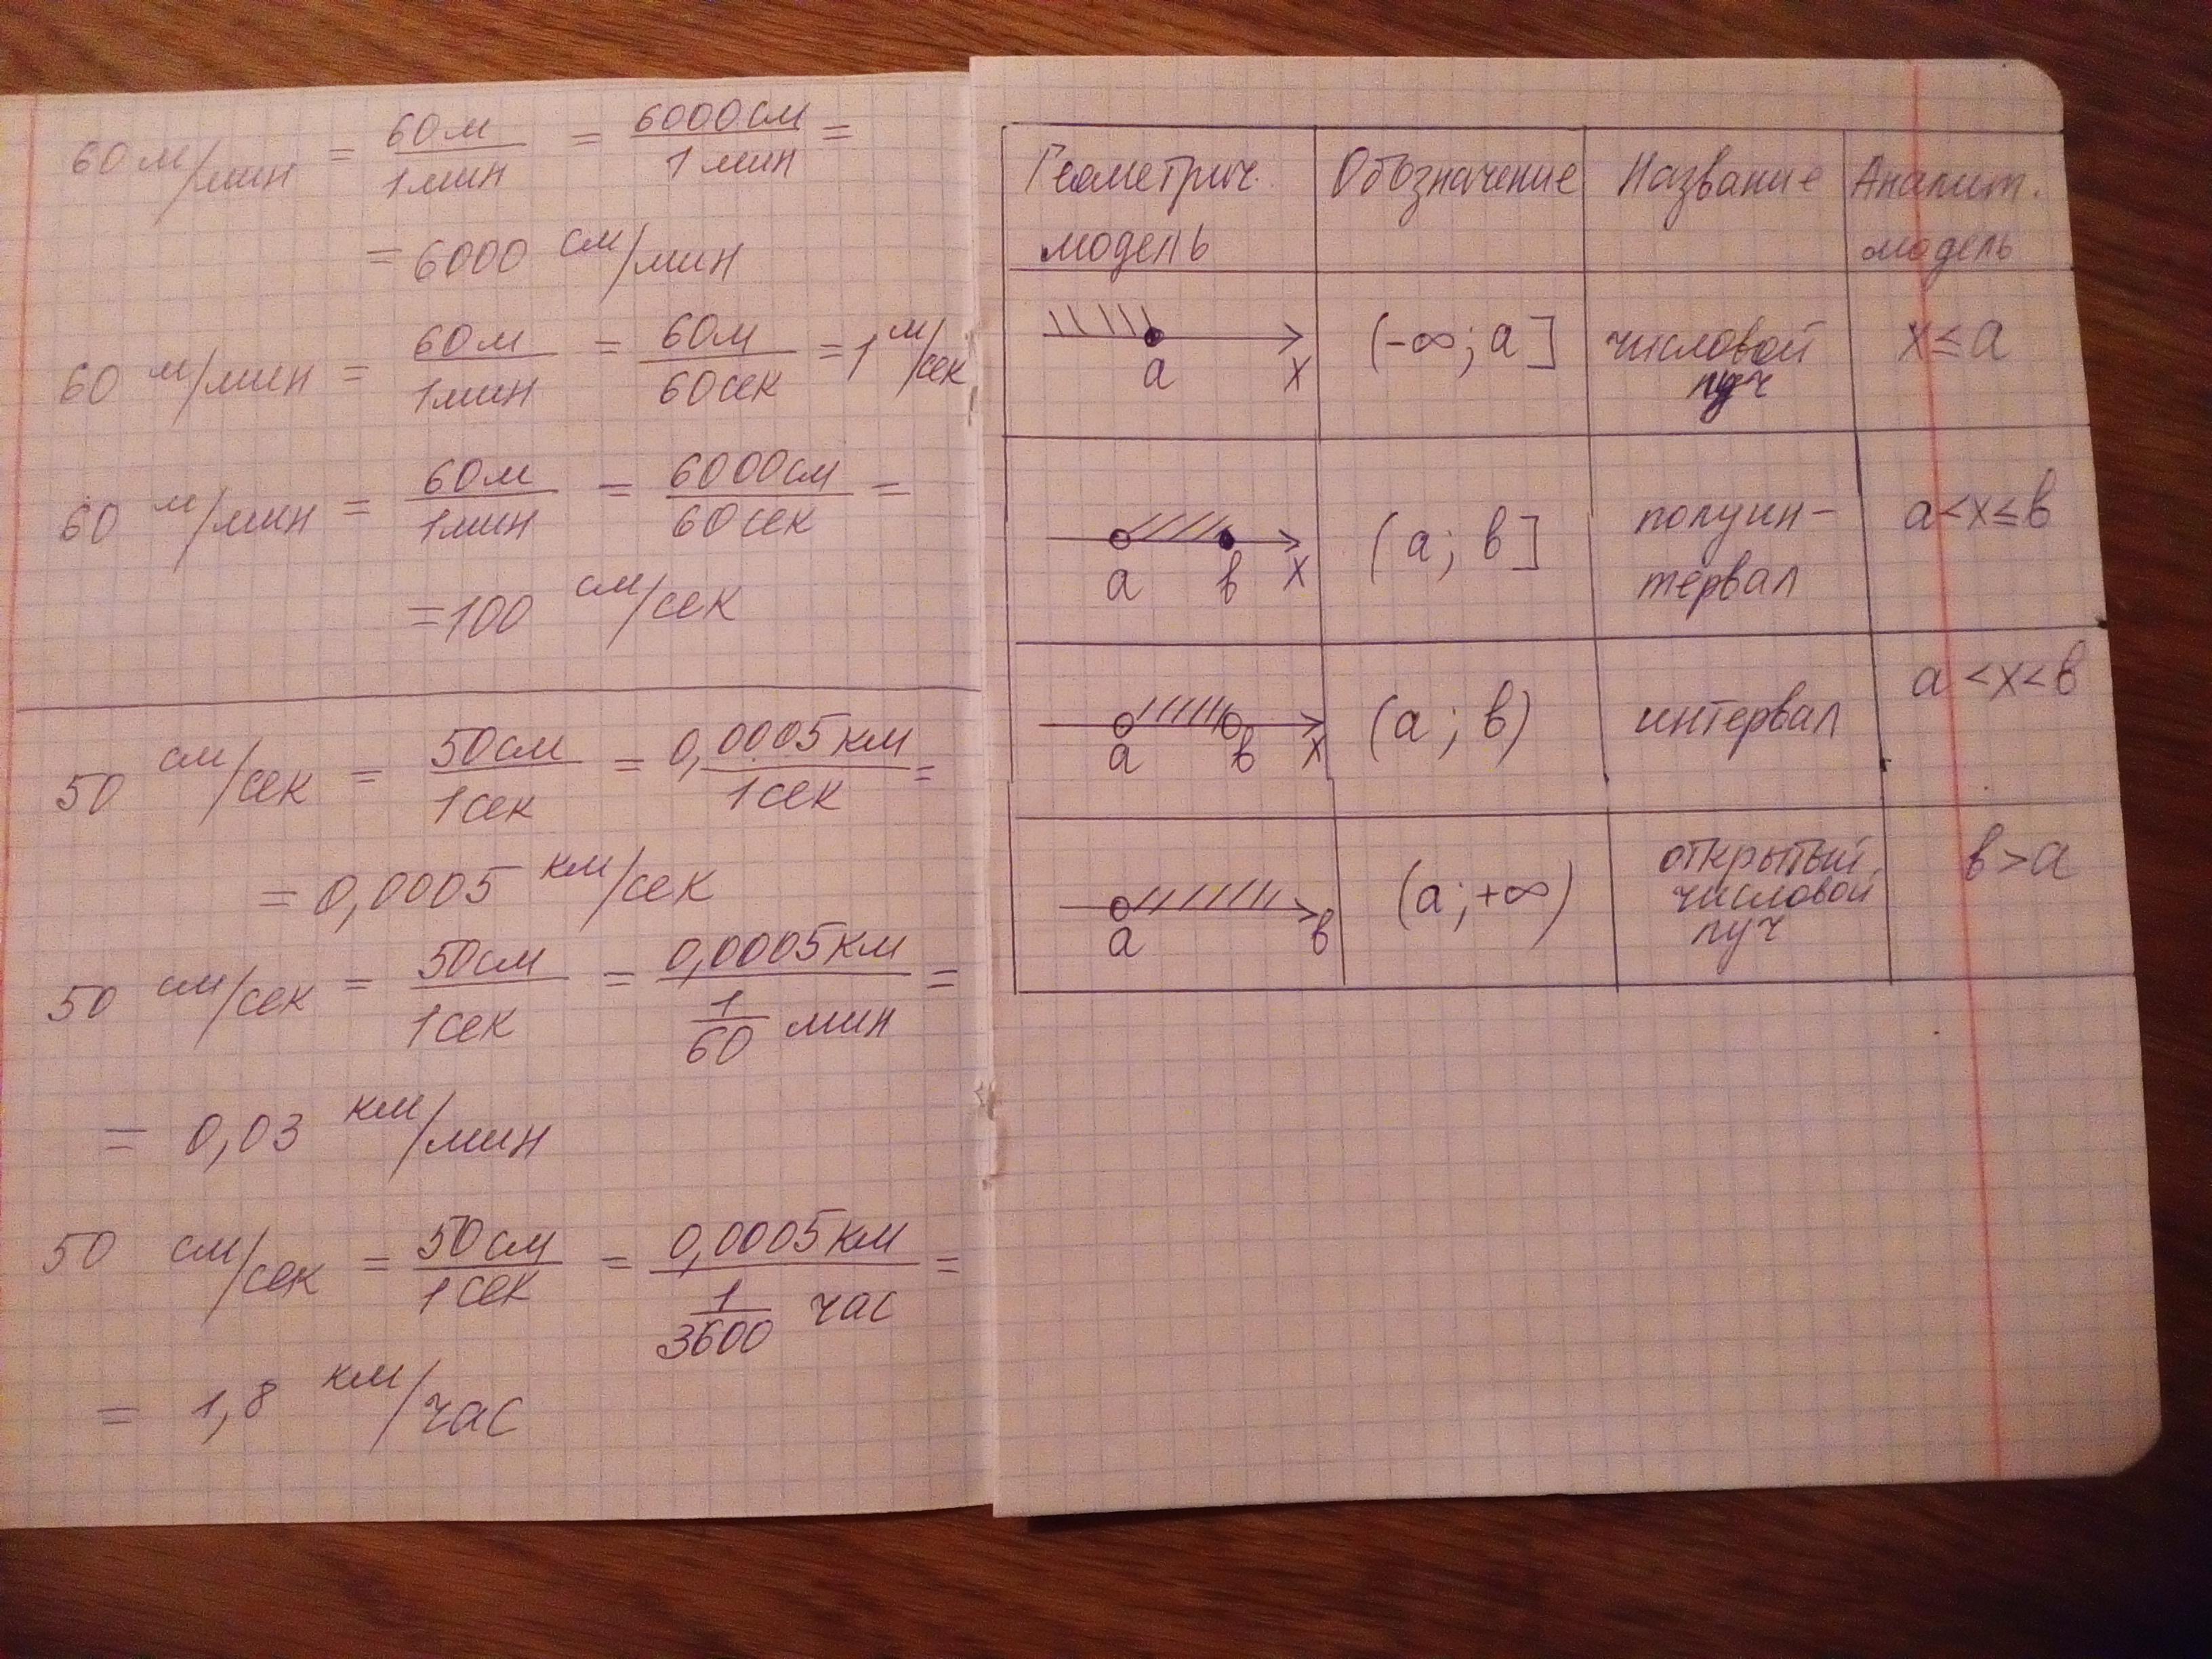 60 м/мин = 60м/1мин = 6000см/1мин =
= 6000 см/мин
60 м/мин = 60м/1мин = 60м/60сек = 1 м/сек
60 м/мин = 60м/1мин = 6000см/60сек =
= 100 см/сек
50 см/сек = 50см/1сек = 0,0005км/1сек =
= 0,0005 км/сек
50 см/сек = 50см/1сек = 0,0005км/1/60 мин =
= 0,03 км/мин
50 см/сек = 50см/1сек = 0,0005км/1/3600 час =
= 1,8 км/час
Геометрич. модель Обозначение Название Аналит. модель
a x (-∞; a] числовой луч x≤a
a в x (a; в] полуин-тервал a<x≤в
a в x (a; в) интервал a<x<в
a в (a; +∞) открытый числовой луч в>a